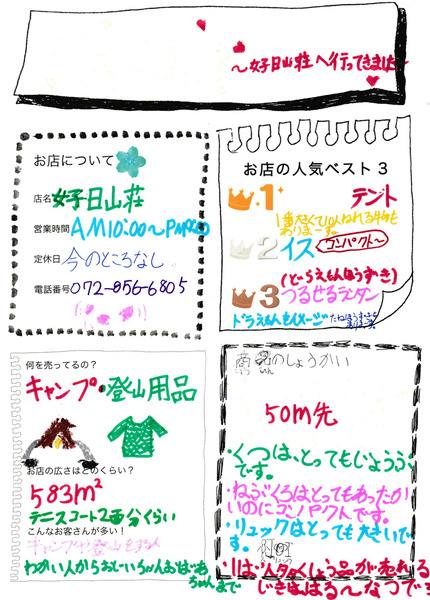 ～好日山荘へ行ってきました～
お店について
店名 好日山荘
営業時間 AM10:00～PM
定休日 今のところなし
電話番号 072-856-6805
お店の人気ベスト3
1 テント
1番大きくて10人ねれる物も
あります。
2 イス コンパクト～
(どーらえもんほうずき)
3 つるせるランタン
ドラえもんをイメージ
何を売ってるの?
キャンプ・登山用品
お店の広さはどのくらい?
583m²
テニスコート2面分くらい
こんなお客さんが多い!
キャンプや登山をする人
わかい人からおじいちゃんおばあ
ちゃんまで
商品のしょうかい
50m先
・くつは、とってもじょうぶ
です。
・ねぶくろはとってもあったか
いのにコンパクトです。
・リュックはとっても大きいで
す。
・1ばん多くくう品が売れる
じきははる～なつです